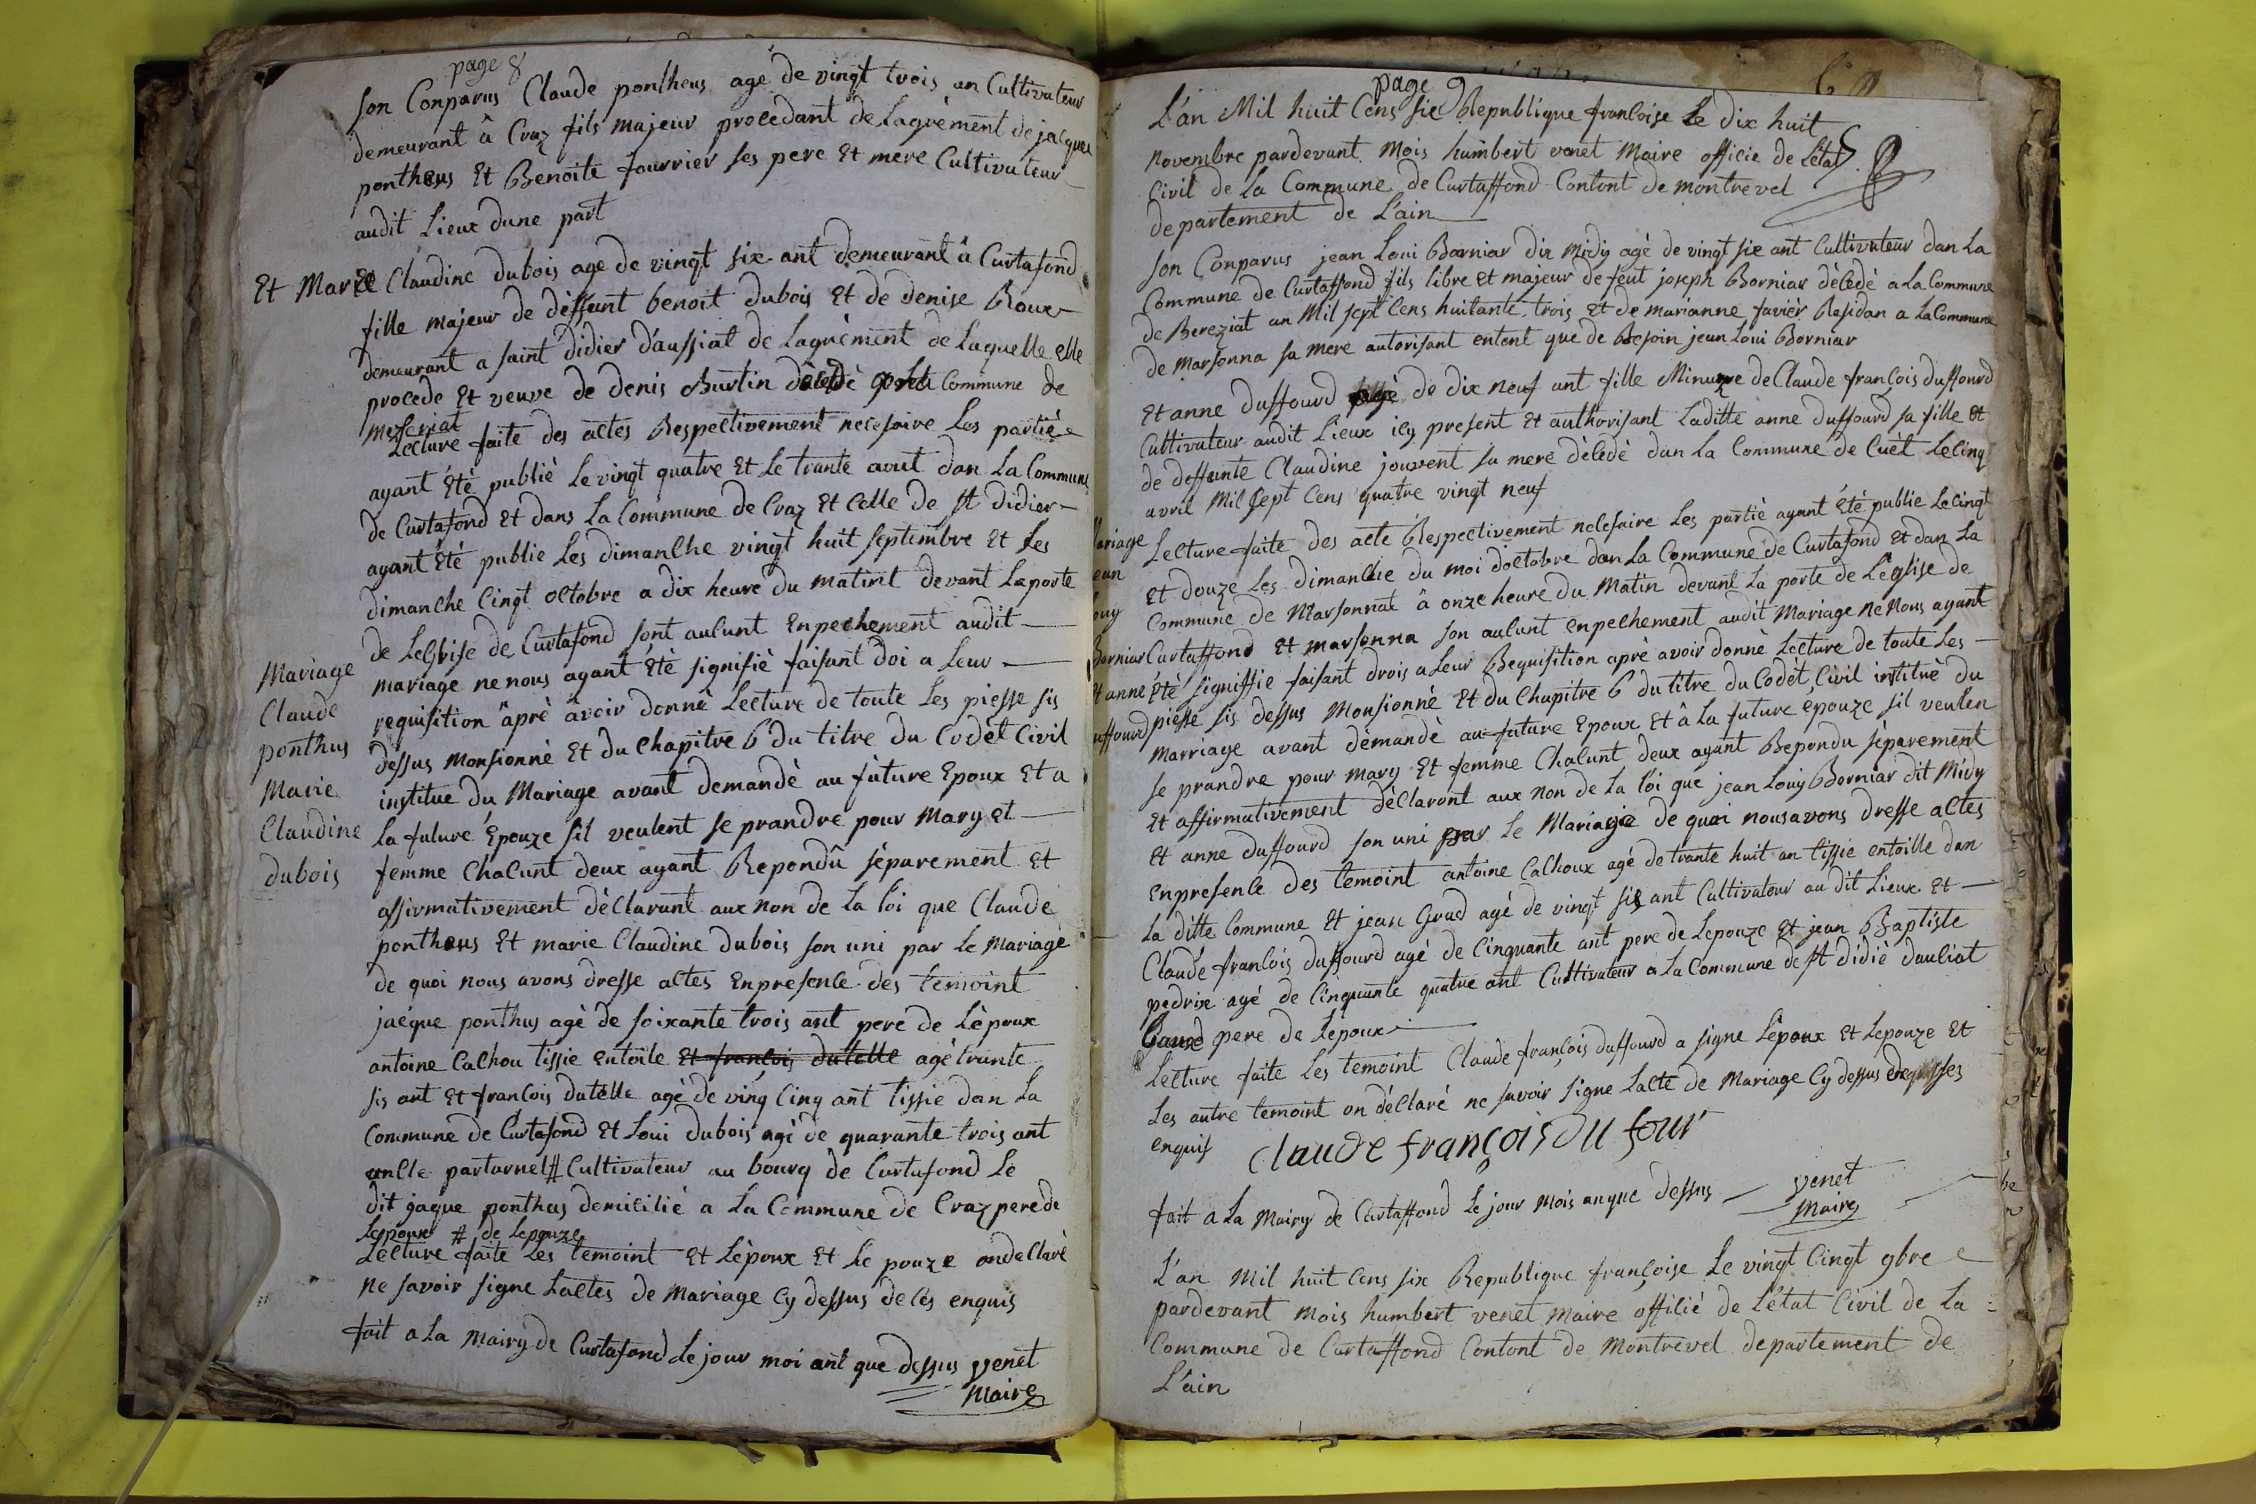 page 8
son Conparus Claude ponthus agé de vingt trois an Cultivateur
demeurant â Craz fils majeur procedant de Lagrèment de jacque
ponthus Et Benoite fourrier ses pere Et mere Cultivateur
audit Lieux dune part
Et Marie Claudine dubois age de vingt six ant demeurant â Curtafond
fille majeur de dèffunt benoit dubois Et de denise Roux
demeurant a saint didier d'aussiat de Lagrèment de Laquelle elle
procede Et veuve de denis Burtin dècèdè Commune de
Lecture faite des actes Respectivement necesaire Les partiè
ayant Été publiè Le vingt quatre Et Le trante aout dan La Commune
de Curtafond Et dans La Commune de Craz Et Celle de st didier
ayant Été publie Les dimanche vingt huit septembre Et Les
dimanche Cingt octobre a dix heure du matint devant La porte
de LeGlise de Curtafond sont aucunt Enpechement audit
mariage ne nous ayant Été signifiè faisant doi a Leur
requisition âprè âvoir donnè Lecture de toute Les piesse sis
dessus Monsionnè Et du Chapitre 6 du titre du Codèt Civil
institue du Mariage avant demandè au future Epoux Et a
La future Epouze sil veulent se prandre pour Mary et
femme Chacunt deux ayant Repondû séparement Et
affirmativement dèclarant aux non de La Loi que Claude
ponthus Et marie Claudine dubois son uni par Le Mariage
de quoi nous avons dresse actes Enpresence des temoint
jacque ponthus agè de soixante trois ant pere de Lèpoux
antoine Calhou tissie entoile Et françois dutelle agè trante
sis ant Et françois dutelle agè de ving Cinq ant tissie dan La
Commune de Curtafond Et Loui dubois agè de quarante trois ant
oncle partarnel # Cultivateur au bourg de Curtafond Le
dit jaque ponthus demicilié a La Commune de Craz pere de
Lepoux # de Lepouze
Lecture faite Les temoint Et Lépoux Et Le pouze on declarè
ne savoir signe Lactes de Mariage Cy dessus de Ces enquis
fait a La Mairy de Curtafond Le jour moi ant que dessus venet
Maire
Mariage
Claude
ponthus
Marie
Claudine
dubois
page 9
L'an Mil huit Cens sie Republique françoise Le dix huit
novembre pardevant Mois humbert venet Maire officie de L'etat
Civil de La Commune de Curtaffond Contont de montrevel
departement de L'ain
son Conparus jean Loui Borniar dit Midy agè de vingt six ant Cultivateur dan La
Commune de Curtaffond fils libre Et majeur de feut joseph Borniar dècèdè a La Commune
de Bereziat an Mil sept Cens huitante trois Et de marianne favièr Residan a La Commune
de Marsonna sa mere autorisant entent que de Besoin jean Loui Borniar
Et anne duffourd de dix neuf ant fille Minuzre de Claude françois duffourd
Cultivateur audit Lieux icy present Et authorisant Laditte anne duffourd sa fille Et
de deffunte Claudine jouvent sa mere dècèdè dan La Commune de Cuèt Le Cinq
avril Mil Sept Cens quatre vingt neuf
Lecture faite des acte Respectivement necesaire Les partiè ayant Été publie Le Cingt
Et douze Les dimanche du moi doctobre dan La Commune de Curtafond Et dan La
Commune de Marsonnat â onze heure du Matin devant La porte de L'église de
Curtaffond Et marsonna son aucunt enpechement audit Mariage ne Nous ayant
Été signiffie faisant drois a Leur Requisition aprè avoir donnè Lecture de toute Les
piesse sis dessus Monsionnè Et du Chapitre 6 du titre du Codèt Civil institué du
Marriage avant dèmandè au future Epoux Et â La future épouze sil veulen
se prandre pour mary Et femme Chacunt deux ayant Repondu sèparement
Et affirmativement dèclaront aux non de La loi que jean Louiy Borniar dit Midy
Et anne duffourd son uni par Le Mariage de quoi nous avons dresse actes
Enpresence des temoint antoine Calhoux agé de trante huit an tissie entoille dan
La ditte Commune Et jean Grud agé de vingt six ant Cultivateur au dit Lieux Et
Claude françois duffourd agè de Cinquante ant pere de Lepouze Et jean Baptiste
pedrix agé de Cinquante quatre ant Cultivateur a La Commune de st didiè dauciat
pere de Lepoux
Lecture faite Les temoint Claude françois duffourd a signe Lèpoux Et Lepouze Et
Les autre temoint on dèclaré ne savoir signe Lacte de Mariage Cy dessus
enquis
Claude françois du four
fait a La Mairy de Curtaffond Le jour Mois an que dessus
venet
Maire
L'an Mil huit Cens six Republique françoise Le vingt Cingt 9bre
pardevant Mois humbert venet Maire officiè de L'ètat Civil de La
Commune de Curtaffond Contont de Montrevel departement de
L'ain